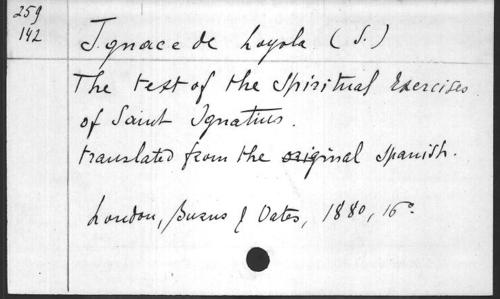 259
142
Ignace de Loyola (S.)
The text of the Spiritual Exercises
of Saint Ignatius.
translated from the original Spanish.
London, Burns & Oates, 1880, 16°.